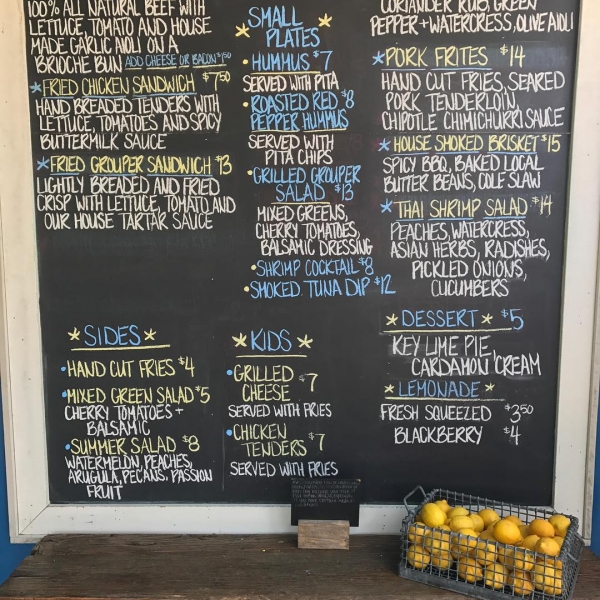 100% ALL NATURAL BEEF WITH
LETTUCE, TOMATO AND HOUSE
MADE GARLIC AIOLI ON A
BRIOCHE BUN ADD CHEESE OR BACON $1.50
FRIED CHICKEN SANDWICH $7.50
HAND BREADED TENDERS WITH
LETTUCE, TOMATOES AND SPICY
BUTTERMILK SAUCE
FRIED GROUPER SANDWICH $13
LIGHTLY BREADED AND FRIED
CRISP WITH LETTUCE, TOMATO AND
OUR HOUSE TARTAR SAUCE
SIDES
HAND CUT FRIES $4
MIXED GREEN SALAD $5
CHERRY TOMATOES +
BALSAMIC
SUMMER SALAD $8
WATERMELON, PEACHES,
ARUGULA, PECANS, PASSION
FRUIT
SMALL
PLATES
HUMMUS $7
SERVED WITH PITA
ROASTED RED $8
PEPPER HUMMUS
SERVED WITH
PITA CHIPS
GRILLED GROUPER
SALAD $13
MIXED GREENS,
CHERRY TOMATOES,
BALSAMIC DRESSING
SHRIMP COCKTAIL $8
SMOKED TUNA DIP $12
KIDS
GRILLED
CHEESE $7
SERVED WITH FRIES
CHICKEN
TENDERS $7
SERVED WITH FRIES
CORIANDER RUB, GREEN
PEPPER + WATERCRESS, OLIVE AIOLI
PORK FRITES $14
HAND CUT FRIES, SEARED
PORK TENDERLOIN,
CHIPOTLE CHIMICHURRI SAUCE
HOUSE SMOKED BRISKET $15
SPICY BBQ, BAKED LOCAL
BUTTER BEANS, COLE SLAW
THAI SHRIMP SALAD $14
PEACHES, WATERCRESS,
ASIAN HERBS, RADISHES,
PICKLED ONIONS,
CUCUMBERS
DESSERT $5
KEY LIME PIE,
CARDAMON CREAM
LEMONADE
FRESH SQUEEZED $3.50
BLACKBERRY $4